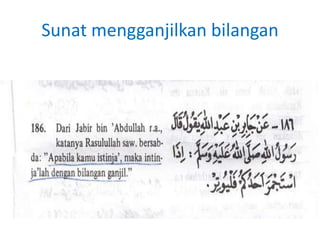 Sunat mengganjilkan bilangan
186. Dari Jabir bin 'Abdullah r.a.,
katanya Rasulullah saw. bersab-
da: "Apabila kamu istinja', maka intin-
ja'lah dengan bilangan ganjil."
١٨٦ - عَنْ جَابِرِ بْنِ عَبْدِ اللّٰهِ يَقُولُ قَالَ
رَسُولُ اللّٰهِ صَلَّى اللّٰهُ عَلَيْهِ وَسَلَّمَ: إِذَا
اسْتَجْمَرَ أَحَدُكُمْ فَلْيُوتِرْ.